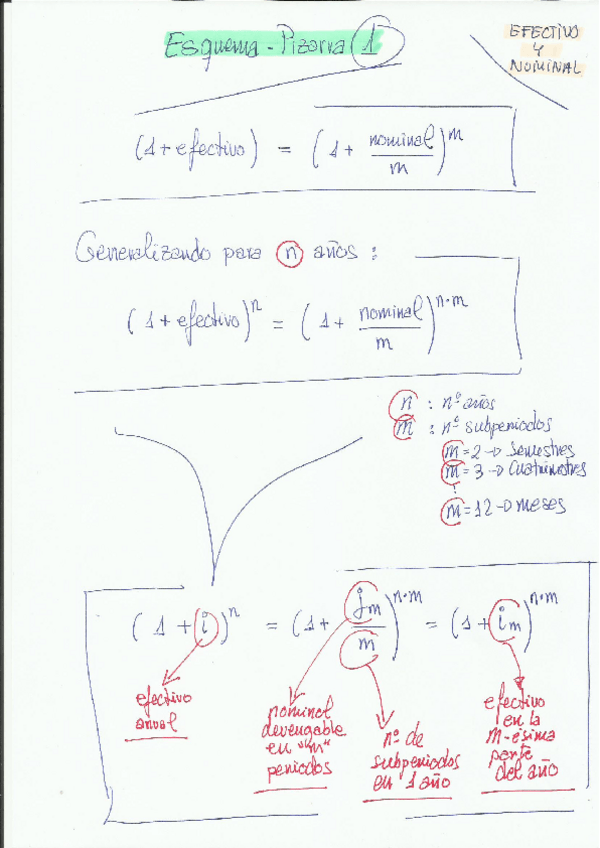 Esquema - Pizarra 1
EFECTIVO
Y
NOMINAL
(1 + efectivo) = (1 + nominal/m)^m
Generalizando para n años :
(1 + efectivo)^n = (1 + nominal/m)^n·m
n : nº años
m : nº subperiodos
m = 2 → Semestres
m = 3 → Cuatrimestres
m = 12 → meses
(1 + i)^n = (1 + jm/m)^n·m = (1 + im)^n·m
efectivo
anual
nominal
devengable
en "m"
periodos
nº de
subperiodos
en 1 año
efectivo
en la
m-ésima
parte
del año